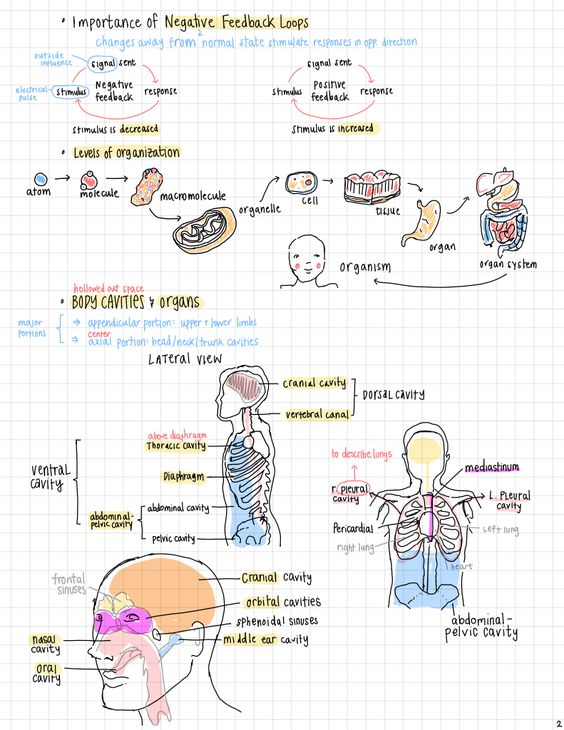 • Importance of Negative Feedback Loops
changes away from normal state stimulate responses in opp. direction
2
outside influence
signal sent
electrical pulse
stimulus
Negative feedback
response
stimulus is decreased
signal sent
stimulus
Positive feedback
response
stimulus is increased
• Levels of organization
atom
molecule
macromolecule
organelle
cell
tissue
organ
organ system
organism
hollowed out space
• BODY CAVITIES & organs
major portions
→ appendicular portion: upper + lower limbs
center
→ axial portion: head/neck/trunk cavities
LATERAL VIEW
cranial cavity
vertebral canal
DORSAL CAVITY
above diaphragm
Thoracic cavity
Diaphragm
VENTRAL CAVITY
abdominal-pelvic cavity
abdominal cavity
pelvic cavity
to describe lungs
mediastinum
r. pleural cavity
L. Pleural cavity
Pericardial
right lung
Left lung
heart
abdominal-pelvic cavity
frontal sinuses
cranial cavity
orbital cavities
sphenoidal sinuses
middle ear cavity
nasal cavity
oral cavity
2